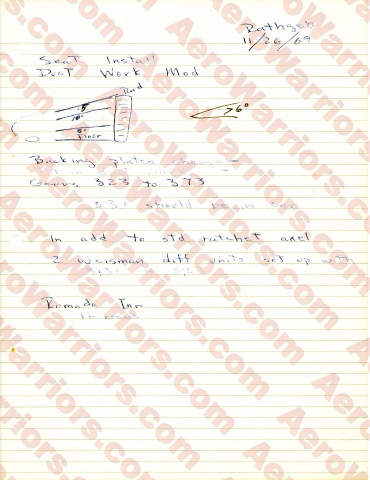 Rathgeb
11/26/69
Seat Install
Duct Work Mod
Rad
5°
10°
5°
Floor
6°
Backing plates change
Gears 3.23 to 3.73
3.31 should begin
In add to std ratchet axel
2 Weisman diff units set up with
Ramada Inn
16 rooms
AeroWarriors.com